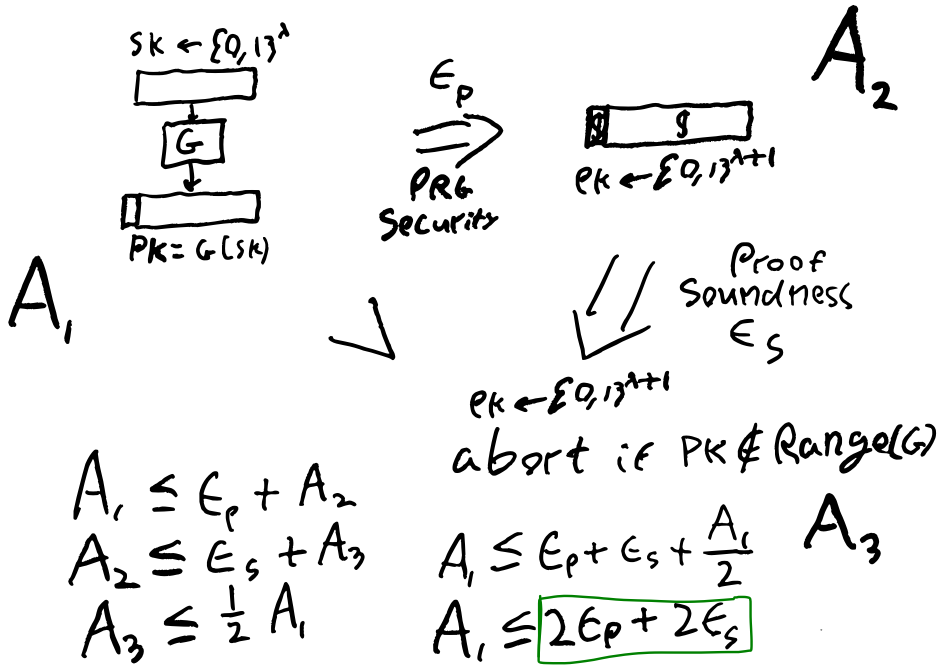 sk ← {0,1}^λ
G
PK = G(sk)
A₁
ϵₚ
PRG
Security
$ $
PK ← {0,1}^λ+1
A₂
Proof
Soundness
ϵₛ
PK ← {0,1}^λ+1
abort if PK ∉ Range(G)
A₃
A₁ ≤ ϵₚ + A₂
A₂ ≤ ϵₛ + A₃
A₃ ≤ 1/2 A₁
A₁ ≤ ϵₚ + ϵₛ + A₁/2
A₁ ≤ 2ϵₚ + 2ϵₛ